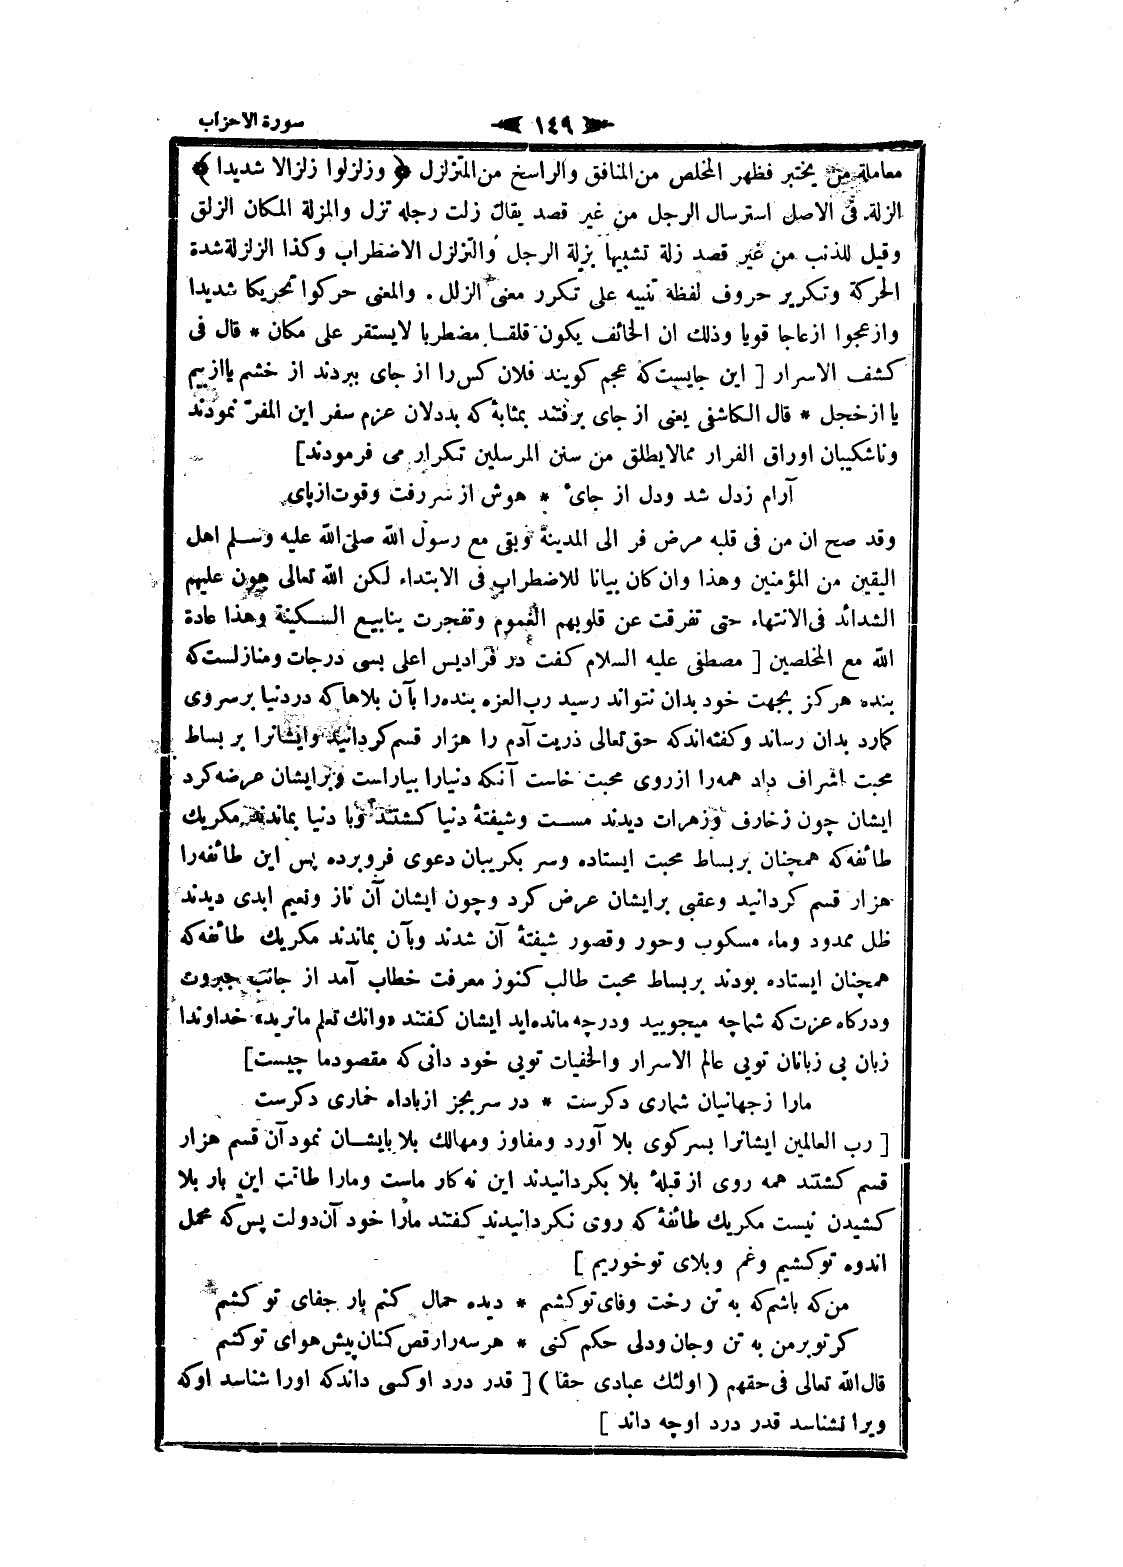 سورة الاحزاب
١٤٩
معاملة من يختبر فظهر المخلص من المنافق والراسخ من المتزلزل ﴿ وزلزلوا زلزالا شديدا ﴾
الزلة فى الاصل استرسال الرجل من غير قصد يقال زلت رجله تزل والمزلة المكان الزلق
وقيل للذنب من غير قصد زلة تشبيها بزلة الرجل والتزلزل الاضطراب وكذا الزلزلة شدة
الحركة وتكرير حروف لفظه تنبيه على تكرر معنى الزلل . والمعنى حركوا تحريكا شديدا
وازعجوا ازعاجا قويا وذلك ان الخائف يكون قلقا مضطربا لايستقر على مكان * قال فى
كشف الاسرار [ اين جايست كه عجم كويند فلان كس را از جاى ببردند از خشم يا ازبيم
يا از خجل * قال الكاشفى يعنى از جاى برفتند بمثابۀ كه بددلان عزم سفر اين المفرّ نمودند
وناشكيبان اوراق الفرار ممالايطلق من سنن المرسلين تكرار مى فرمودند]
آرام زدل شد ودل از جاى * هوش از سررفت وقوت ازپاى
وقد صح ان من فى قلبه مرض فر الى المدينة وبقى مع رسول الله صلى الله عليه وسلم اهل
اليقين من المؤمنين وهذا وان كان بيانا للاضطراب فى الابتداء لكن الله تعالى هون عليهم
الشدائد فى الانتهاء حتى تفرقت عن قلوبهم الغموم وتفجرت ينابيع السكينة وهذا عادة
الله مع المخلصين [ مصطفى عليه السلام كفت در فراديس اعلى بسى درجات ومنازلست كه
بنده هركز بجهت خود بدان نتواند رسيد رب العزه بنده را بآن بلاها كه دردنيا برسروى
كمارد بدان رساند وكفته اند كه حق تعالى ذريت آدم را هزار قسم كردانيد وايشانرا بر بساط
محبت اشراف داد همه را ازروى محبت خاست آنكه دنيارا بياراست وبرايشان عرضه كرد
ايشان چون زخارف وزهرات ديدند مست وشيفتۀ دنيا كشتند وبا دنيا بماندند مكريك
طائفه كه همچنان بربساط محبت ايستاده وسر بكريبان دعوى فروبرده پس اين طائفه را
هزار قسم كردانيد وعقبى برايشان عرض كرد وچون ايشان آن ناز ونعيم ابدى ديدند
ظل ممدود وماء مسكوب وحور وقصور شيفتۀ آن شدند وبآن بماندند مكريك طائفه كه
همچنان ايستاده بودند بربساط محبت طالب كنوز معرفت خطاب آمد از جانب جبروت
ودركاه عزت كه شماچه ميجوييد ودرچه مانده ايد ايشان كفتند «وانك تعلم مانريد» خداوندا
زبان بى زبانان تويى عالم الاسرار والخفيات تويى خود دانى كه مقصود ما چيست]
مارا زجهانيان شمارى دكرست * در سر بجز ازباده خمارى دكرست
[ رب العالمين ايشانرا بسركوى بلا آورد ومفاوز ومهالك بلا بايشان نمود آن قسم هزار
قسم كشتند همه روى از قبلۀ بلا بكردانيدند اين نه كار ماست ومارا طاقت اين بار بلا
كشيدن نيست مكريك طائفۀ كه روى نكردانيدند كفتند مارا خود آن دولت پس كه محمل
اندوه توكشيم وغم وبلاى توخوريم ]
من كه باشم كه به تن رخت وفاى توكشم * ديده حمال كنم بار جفاى تو كشم
كرتوبرمن به تن وجان ودلى حكم كنى * هرسه را رقص كنان پيش هواى توكشم
قال الله تعالى فى حقهم ( اولئك عبادى حقا ) [ قدر درد اوكسى داند كه اورا شناسد اوكه
ويرا نشناسد قدر درد اوچه داند ]